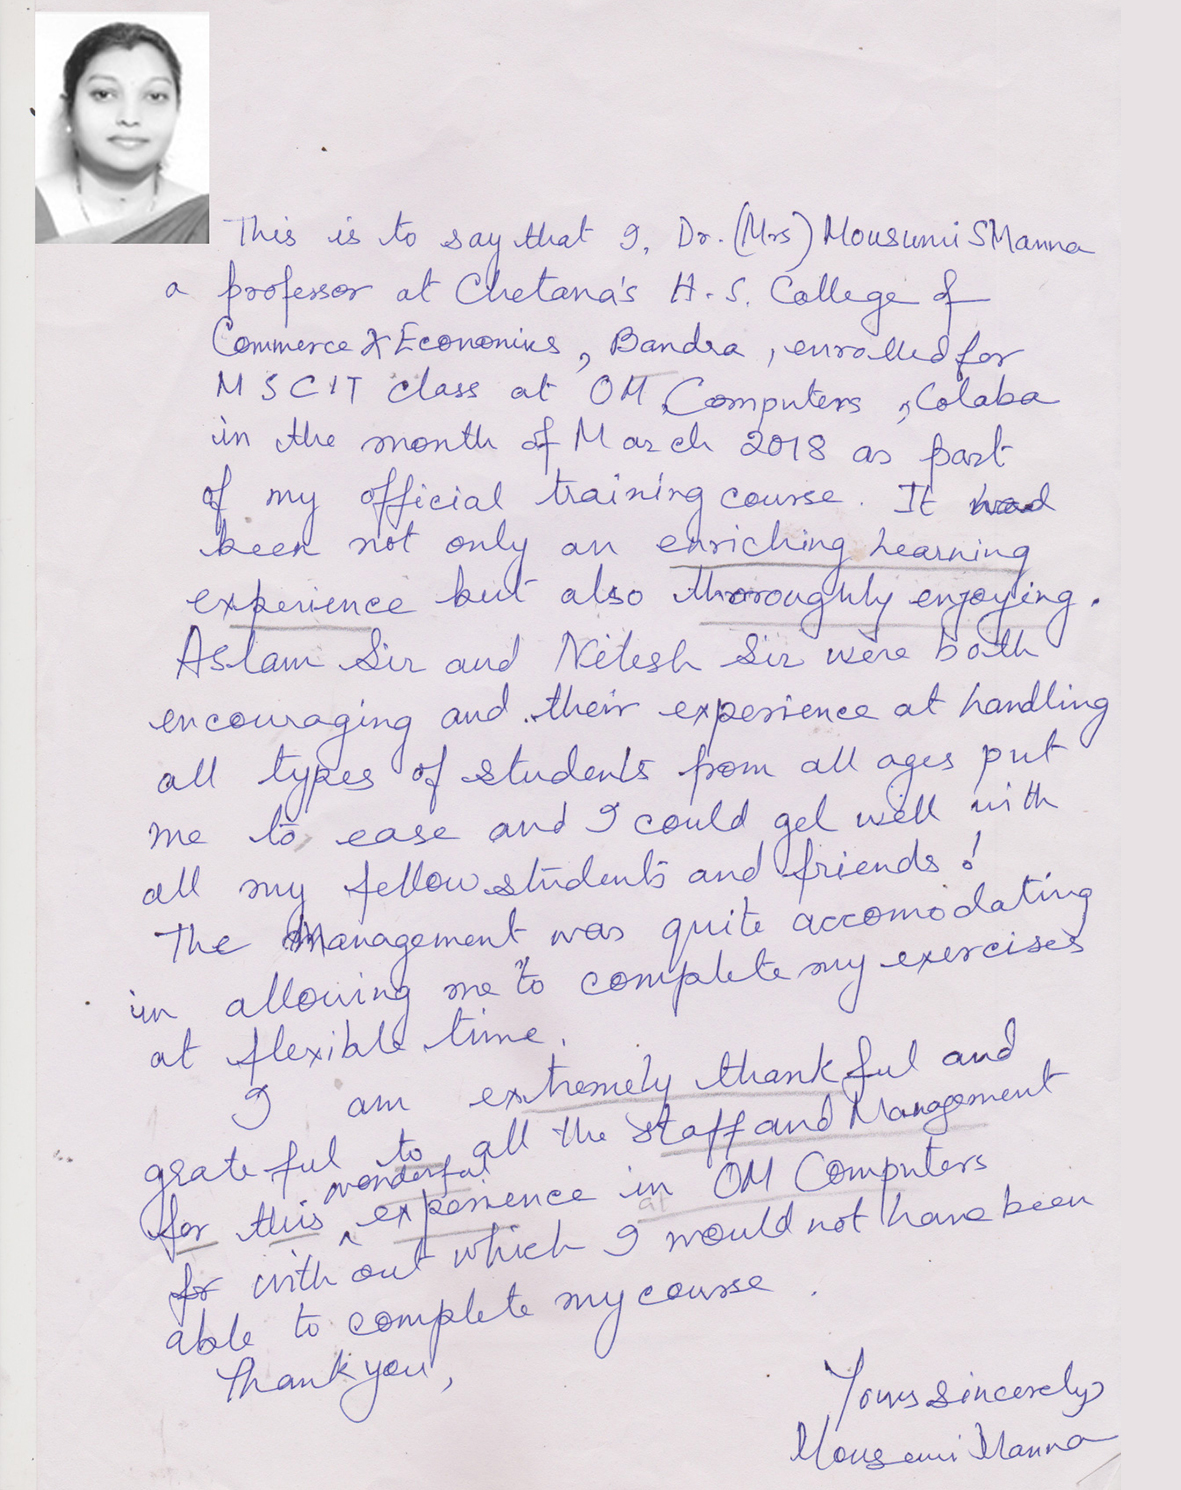 This is to say that I, Dr. (Mrs) Mousumi S Manna
a professor at Chetana's H.S. College of
Commerce & Economics, Bandra, enrolled for
MSCIT class at OM Computers, Colaba
in the month of March 2018 as part
of my official training course. It had
been not only an enriching learning
experience but also thoroughly enjoying.
Aslam Sir and Nitesh Sir were both
encouraging and their experience at handling
all types of students from all ages put
me to ease and I could gel well with
all my fellow students and friends!
The Management was quite accomodating
in allowing me to complete my exercises
at flexible time.
I am extremely thankful and
grateful to all the staff and Management
wonderful
for this ^ experience in OM Computers
at
for with out which I would not have been
able to complete my course.
Thank you,
Yours sincerely
Mousumi Manna